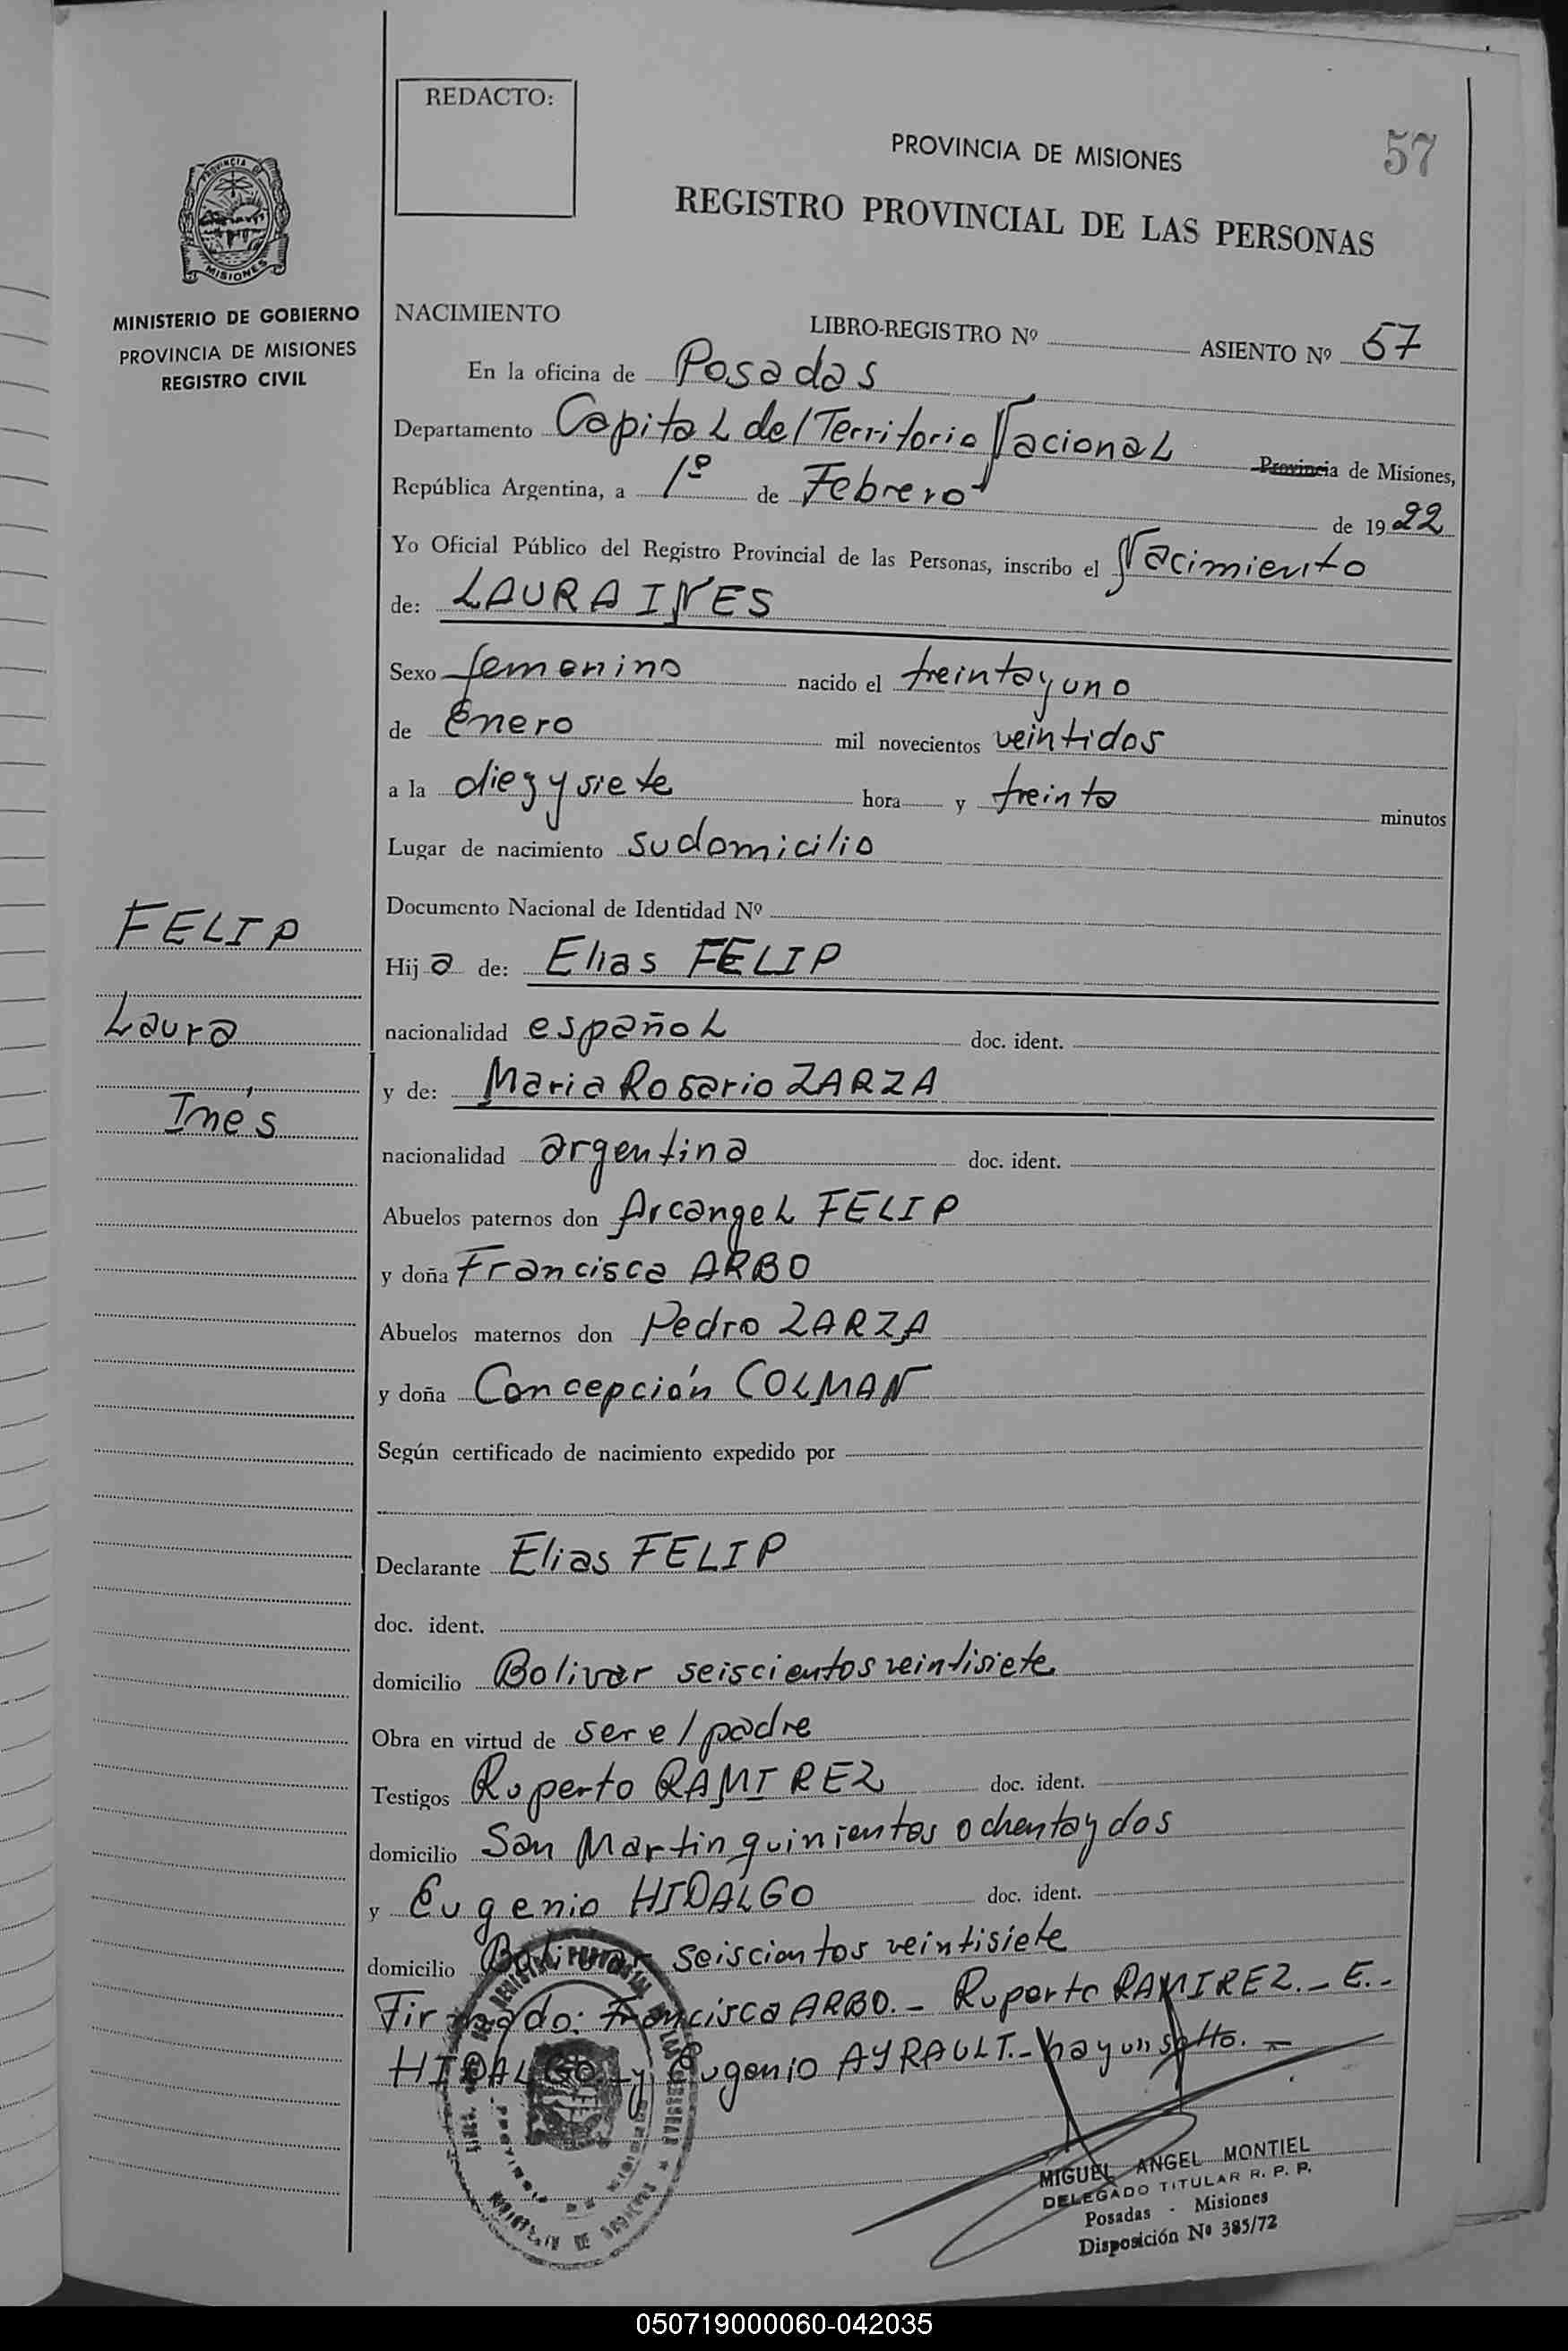 REDACTO:
PROVINCIA DE MISIONES
57
REGISTRO PROVINCIAL DE LAS PERSONAS
PROVINCIA DE
MISIONES
MINISTERIO DE GOBIERNO
PROVINCIA DE MISIONES
REGISTRO CIVIL
NACIMIENTO
LIBRO-REGISTRO Nº ASIENTO Nº 57
En la oficina de Posadas
Departamento Capital del Territorio Nacional Provincia de Misiones,
República Argentina, a 1º de Febrero de 1922
Yo Oficial Público del Registro Provincial de las Personas, inscribo el Nacimiento
de: LAURA INES
Sexo femenino nacido el treinta y uno
de Enero mil novecientos veintidos
a la diez y siete hora y treinta minutos
Lugar de nacimiento su domicilio
Documento Nacional de Identidad Nº
FELIP
Laura
Inés
Hija de: Elias FELIP
nacionalidad español doc. ident.
y de: Maria Rosario ZARZA
nacionalidad argentina doc. ident.
Abuelos paternos don Arcangel FELIP
y doña Francisca ARBO
Abuelos maternos don Pedro ZARZA
y doña Concepción COLMAN
Según certificado de nacimiento expedido por
Declarante Elias FELIP
doc. ident.
domicilio Bolivar seiscientos veintisiete
Obra en virtud de ser el padre
Testigos Ruperto RAMIREZ doc. ident.
domicilio San Martin quinientos ochenta y dos
y Eugenio HIDALGO doc. ident.
domicilio Bolivar seiscientos veintisiete
Firmado: Francisca ARBO.- Ruperto RAMIREZ.- E.-
HIDALGO y Eugenio AYRAULT.- hay un sello.-
MIGUEL ANGEL MONTIEL
DELEGADO TITULAR R. P. P.
Posadas - Misiones
Disposición Nº 385/72
050719000060-042035